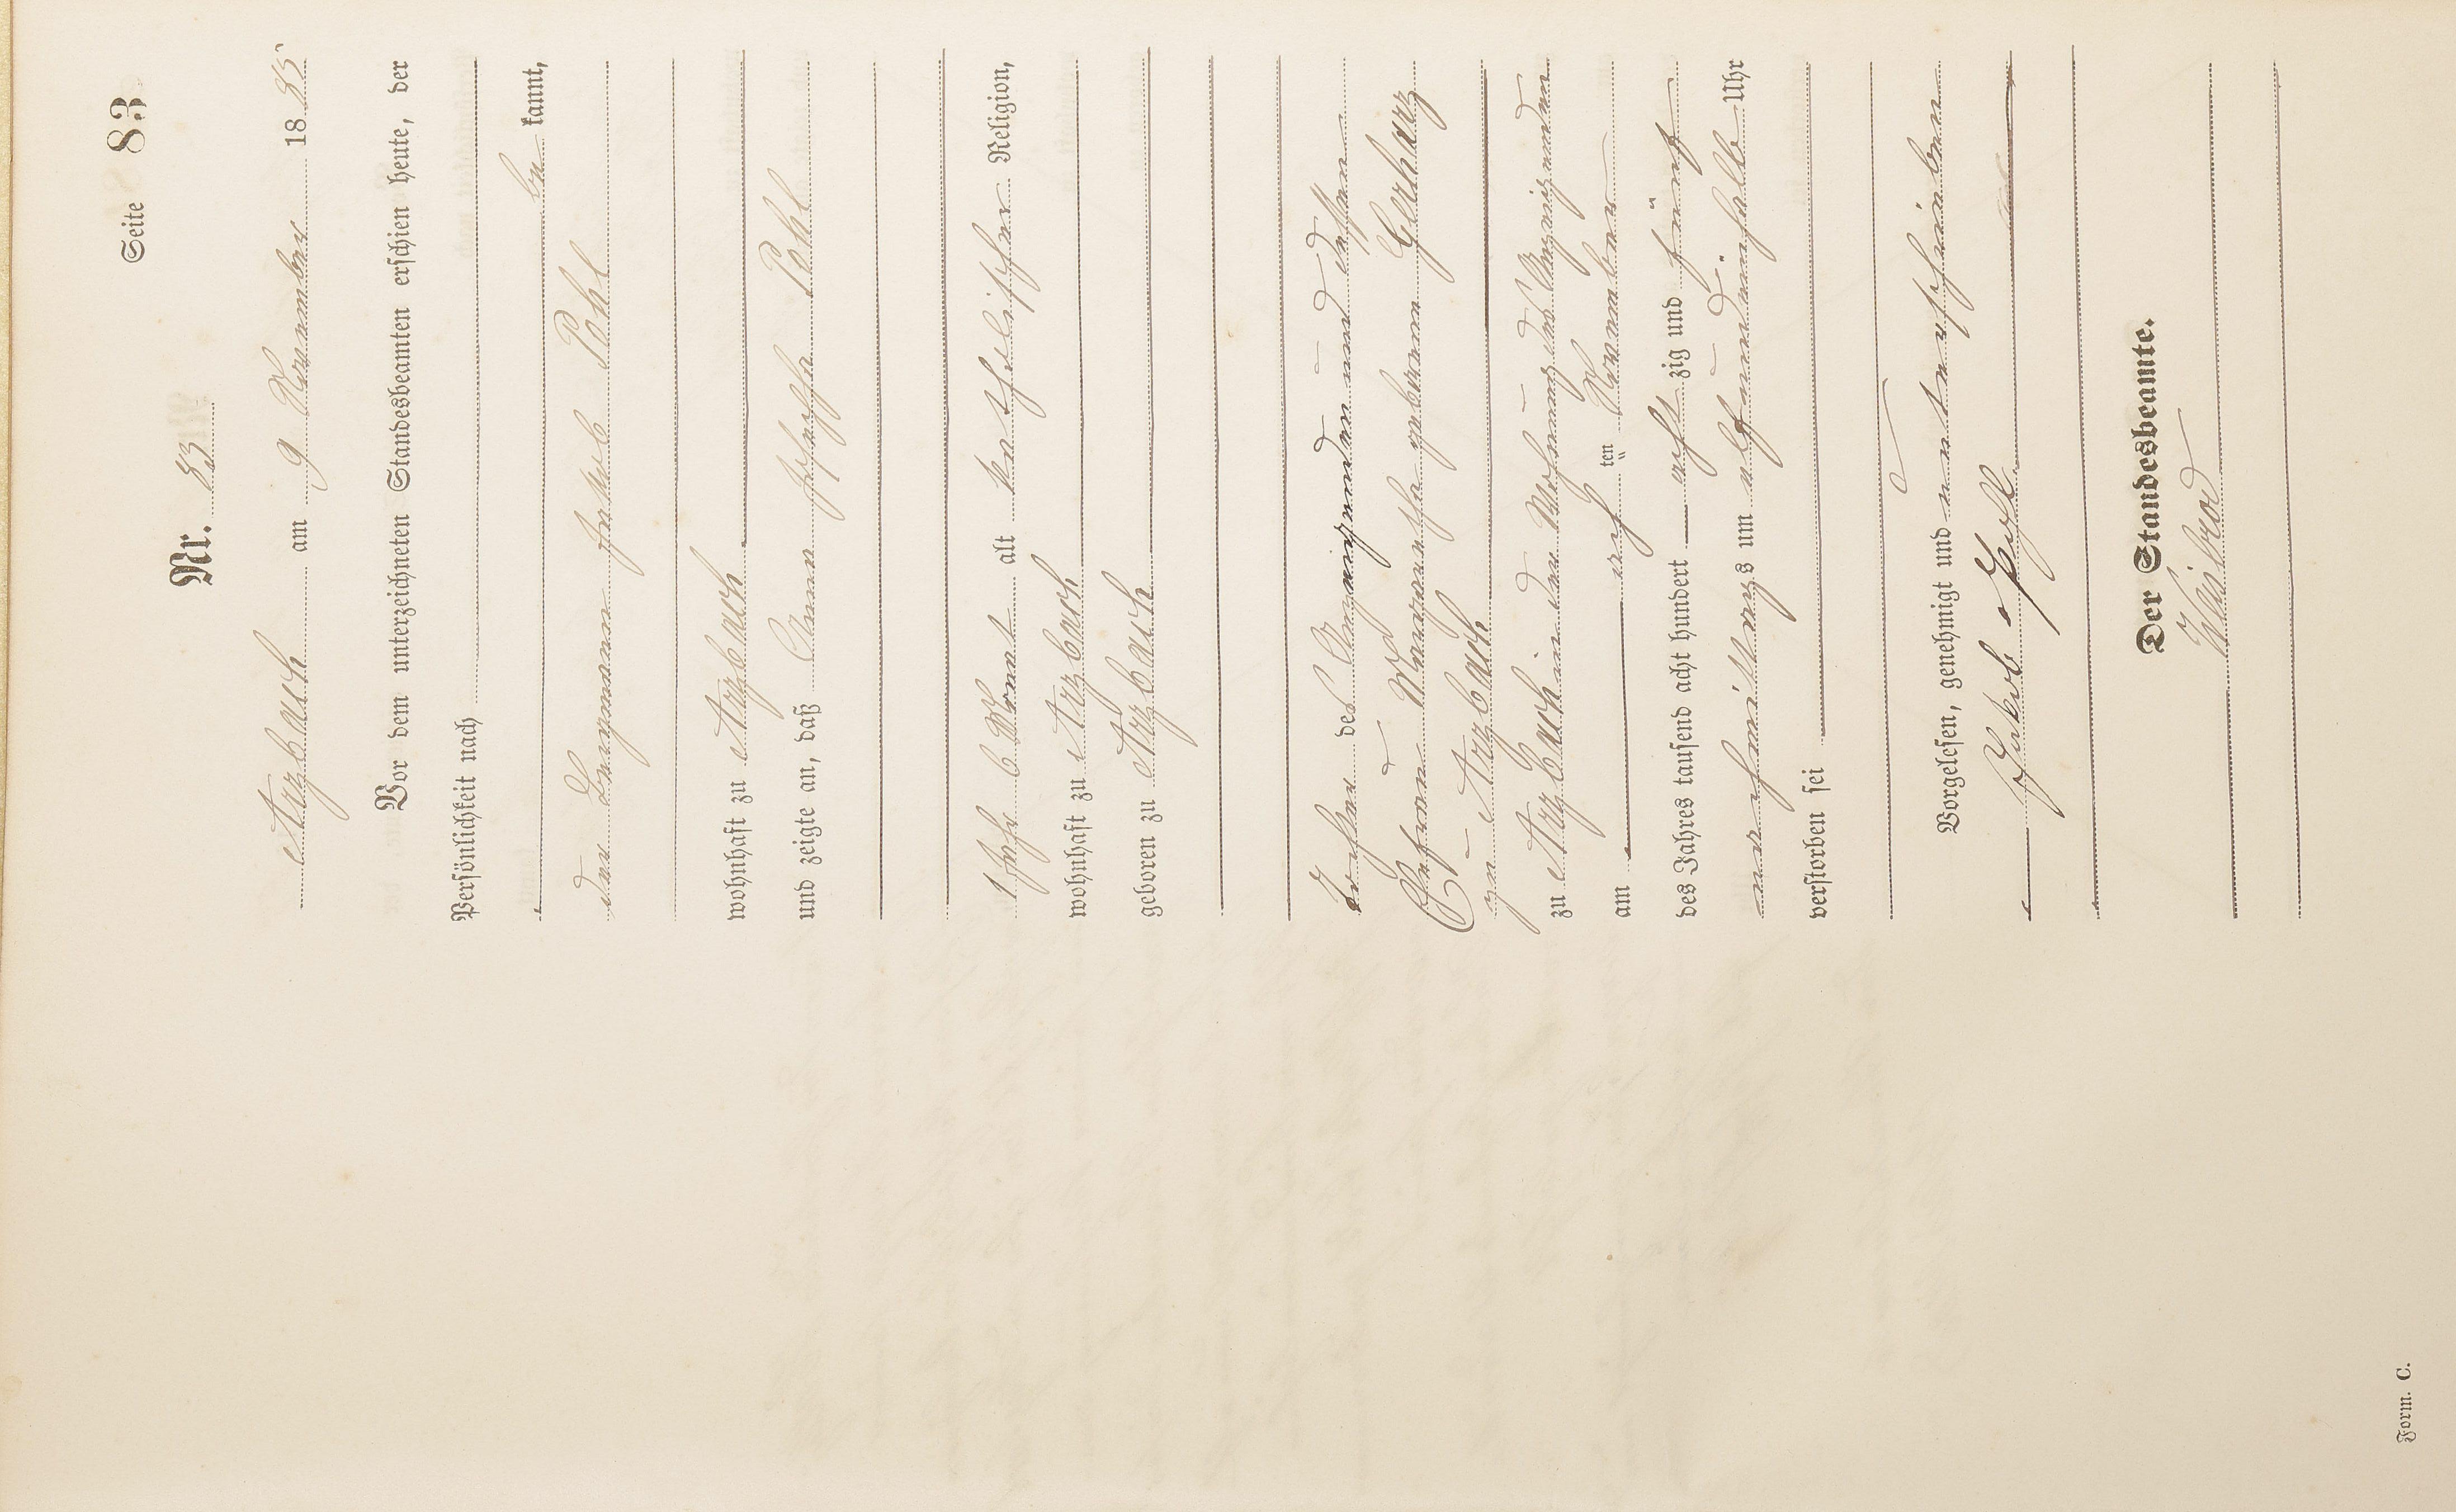 Seite 83
Nr. 83
Arzbach am 9 November 1885
Vor dem unterzeichneten Standesbeamten erschien heute, der
Persönlichkeit nach
be kannt,
der Bergmann Jakob Pohl
wohnhaft zu Arzbach
und zeigte an, daß Anna Josepha Pohl
1 Jahr 6 Monat alt katholischer Religion,
wohnhaft zu Arzbach
geboren zu Arzbach
Tochter des Anzeigenden und dessen
Ehefrau Margaretha geborene Gerharz
zu Arzbach
zu Arzbach in der Wohnung des Anzeigenden
am acht ten November
des Jahres tausend acht hundert acht zig und fünf
nachmittags um elfundeinhalb Uhr
verstorben sei
Vorgelesen, genehmigt und unterschrieben
Jakob Pohl
Der Standesbeamte.
Form. C.